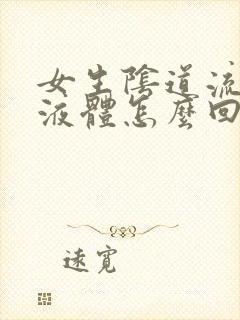 女生陰道流
液體怎麼回
遠寬